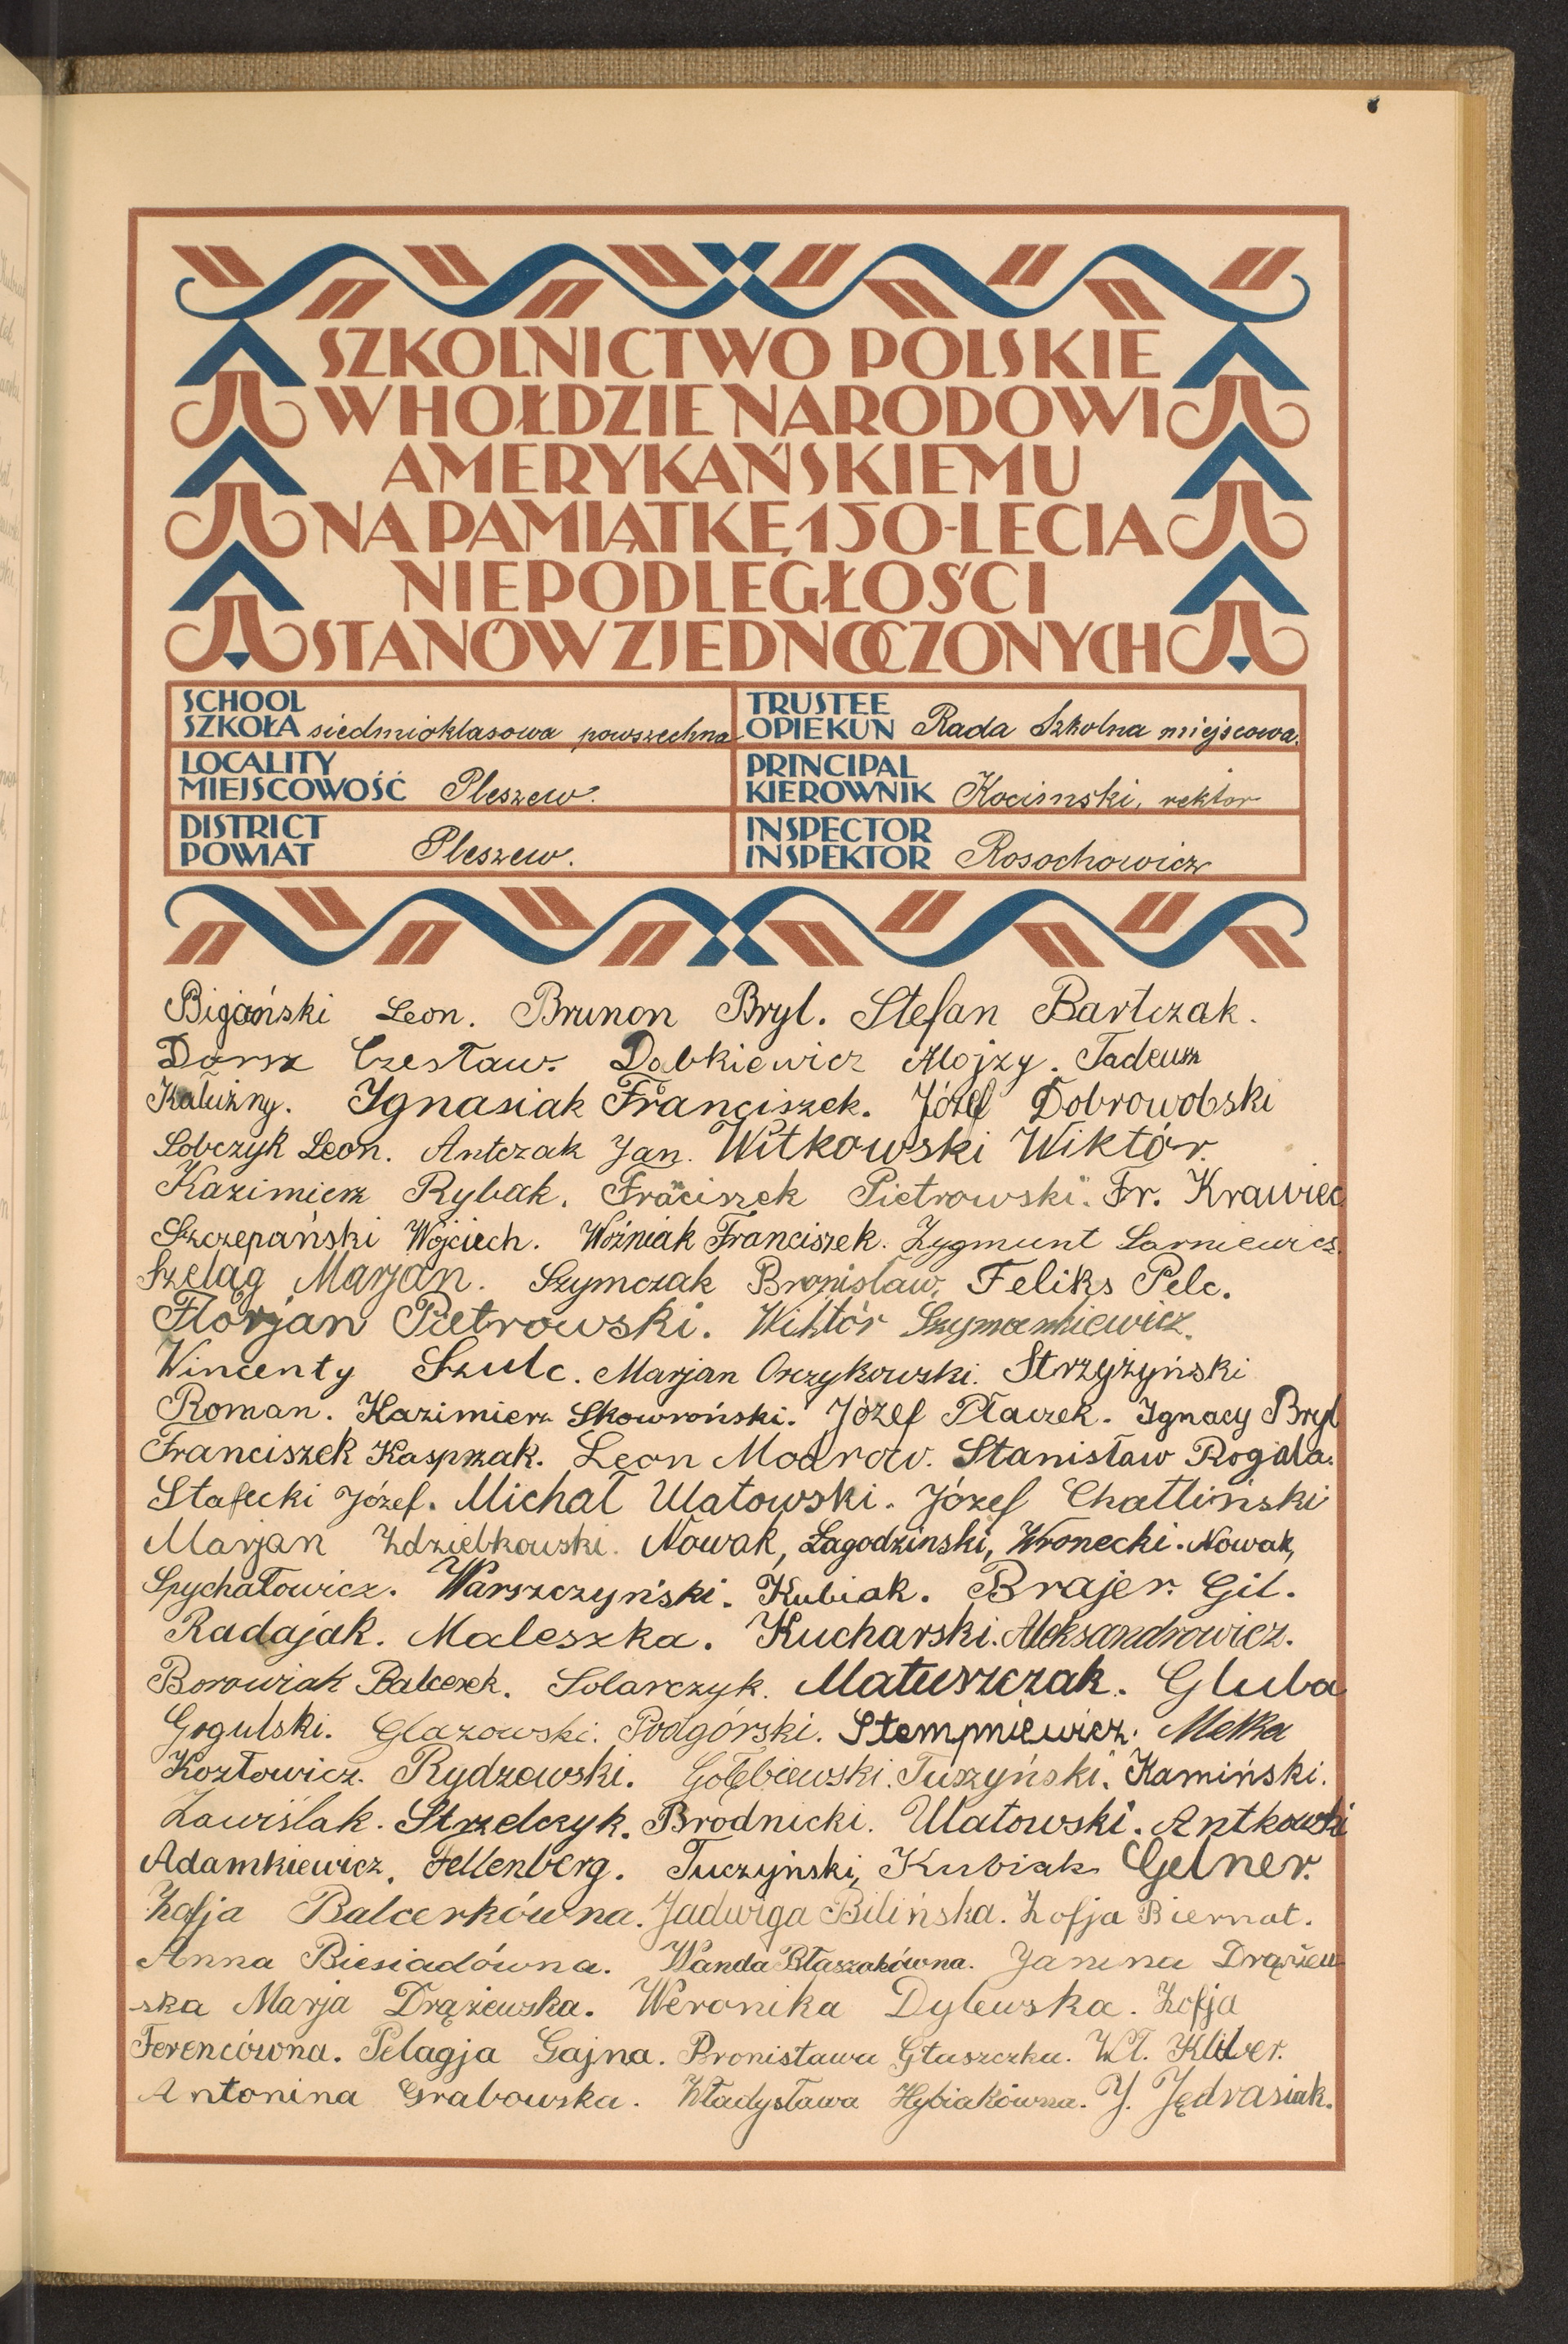 SZKOLNICTWO POLSKIE
W HOŁDZIE NARODOWI
AMERYKAŃSKIEMU
NA PAMIĄTKĘ 150-LECIA
NIEPODLEGŁOŚCI
STANÓW ZJEDNOCZONYCH
SCHOOL
SZKOŁA siedmioklasowa powszechna
TRUSTEE
OPIEKUN Rada Szkolna miejscowa.
LOCALITY
MIEJSCOWOŚĆ Pleszew.
PRINCIPAL
KIEROWNIK Kocimski, rektor
DISTRICT
POWIAT Pleszew.
INSPECTOR
INSPEKTOR Rosochowicz
Bigański Leon. Brunon Bryl. Stefan Bartczak.
Darsz Czesław. Dabkiewicz Alojzy. Tadeusz
Kałużny. Ignasiak Franciszek. Józef Dobrowolski
Sobczyk Leon. Antczak Jan. Witkowski Wiktór.
Kazimierz Rybak. Franciszek Pietrowski. Fr. Krawiec
Szczepański Wojciech. Woźniak Franciszek. Zygmunt Sarniewicz.
Szeląg Marjan. Szymczak Bronisław. Feliks Pelc.
Florjan Pietrowski. Wiktór Szymankiewicz.
Wincenty Szulc. Marjan Orczykowski. Strzyżyński
Roman. Kazimierz Skowroński. Józef Ptaczek. Ignacy Bryl
Franciszek Kasprzak. Leon Modrow. Stanisław Rogala.
Stafecki Józef. Michał Ulatowski. Józef Chatliński
Marjan Zdziebkowski. Nowak, Łagodzinski, Wronecki. Nowak,
Spychałowicz. Warszczyński. Kubiak. Brajer. Gil.
Radajak. Maleszka. Kucharski. Aleksandrowicz.
Borowiak Balcerek. Solarczyk. Matuszczak. Gluba
Gogulski. Glazowski. Podgórski. Stempniewicz. Melka
Kozłowicz. Rydzewski. Gołębiewski. Tuszyński. Kamiński.
Zawiślak. Strzelczyk. Brodnicki. Ulatowski. Antkowski
Adamkiewicz. Fellenberg. Tuczyński, Kubiak Gelner.
Zofja Balcerkówna. Jadwiga Bilińska. Zofja Biernat.
Anna Biesiadówna. Wanda Błaszakówna. Janina Drążew
-ska Marja Drążewska. Weronika Dylewska. Zofja
Ferencówna. Pelagja Gajna. Bronisława Głuszczka. Wł. Kliber.
Antonina Grabowska. Władysława Hybiakówna. J. Jędrasiak.